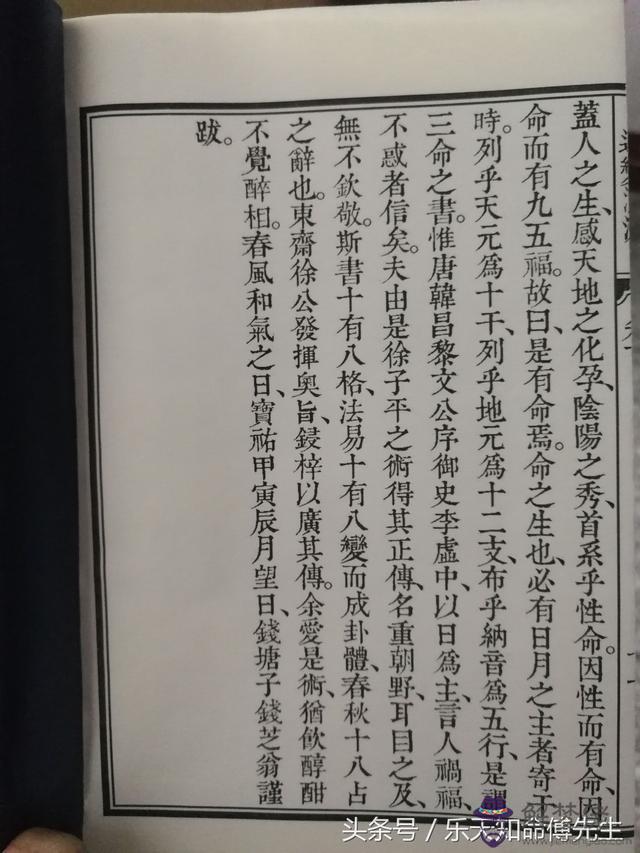 蓋人之生、感天地之化孕、陰陽之秀、首系乎性命。因性而有命、因
命而有九五福。故曰、是有命焉。命之生也、必有日月之主者寄于
時。列乎天元爲十干、列乎地元爲十二支、布乎納音爲五行、是謂
三命之書。惟唐韓昌黎文公序御史李虛中、以日爲主、言人禍福、
不惑者信矣。夫由是徐子平之術得其正傳、名重朝野、耳目之及、
無不欽敬。斯書十有八格、法易十有八變而成卦體、春秋十八占
之辭也。東齋徐公發揮奧旨、鋟梓以廣其傳。余愛是術、猶飲醇酣
不覺醉相。春風和氣之日、寶祐甲寅辰月望日、錢塘子錢芝翁謹
跋。
头条号 / 乐天知命傅先生